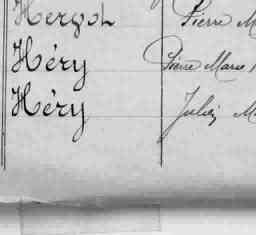 Hergot Pierre M
Héry Pierre Marie
Héry Julien M